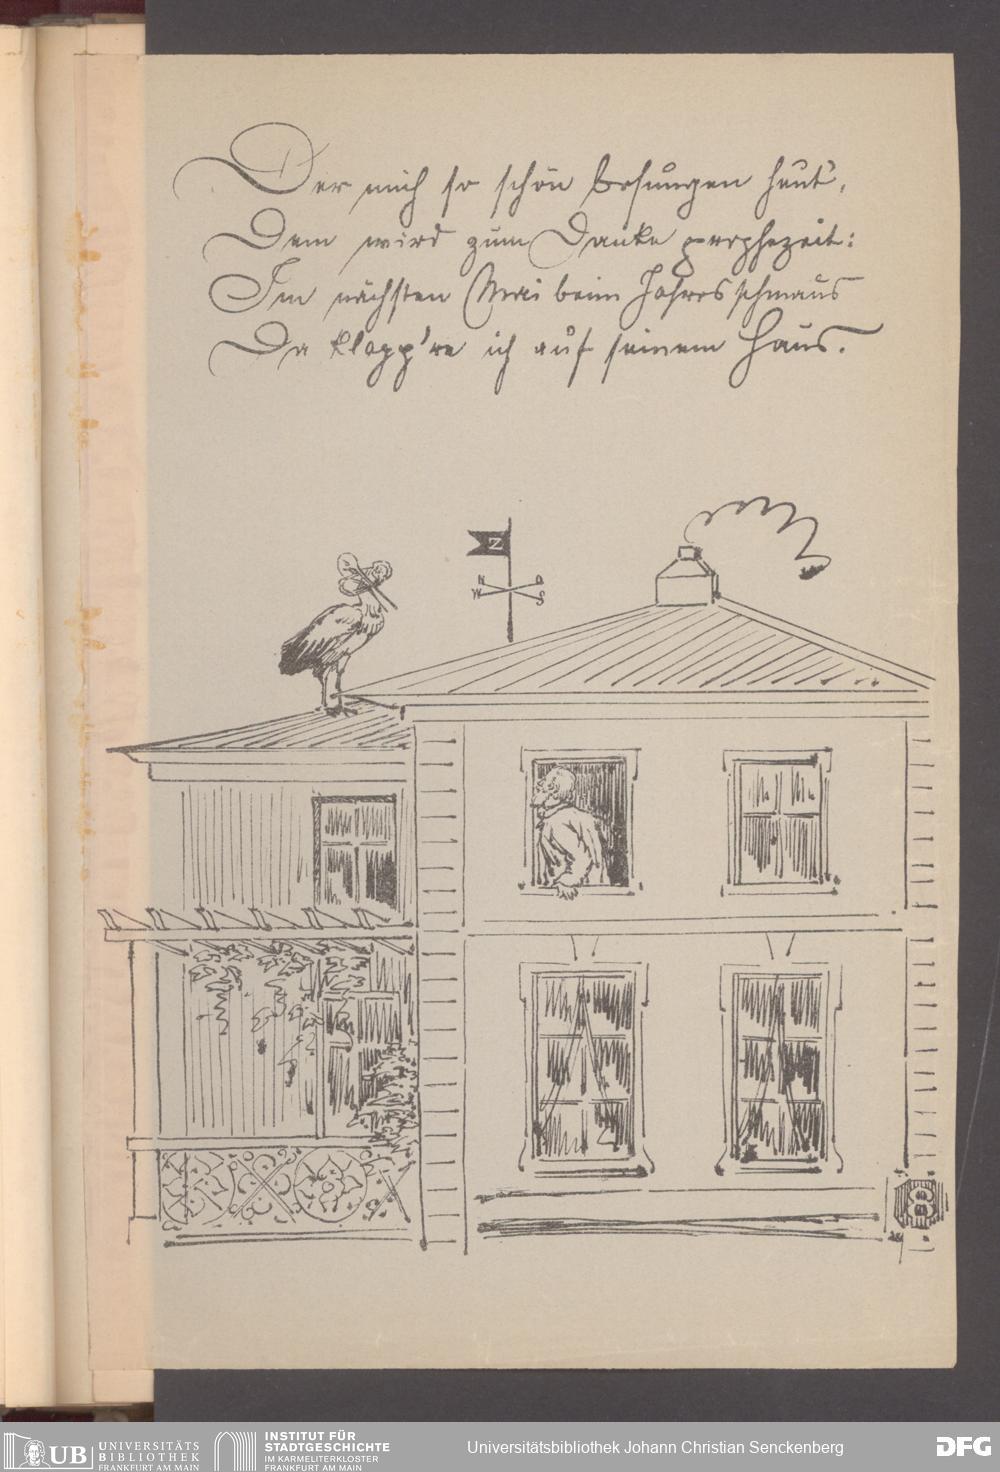 Der mich so schön besungen heut',
Dem wird zum Danke prophezeit:
Im nächsten Mai beim Jahresschmaus
Da klapp're ich auf seinem Haus.
Z
N O
W S
UB UNIVERSITÄTS
BIBLIOTHEK
FRANKFURT AM MAIN
INSTITUT FÜR
STADTGESCHICHTE
IM KARMELITERKLOSTER
FRANKFURT AM MAIN
Universitätsbibliothek Johann Christian Senckenberg
DFG